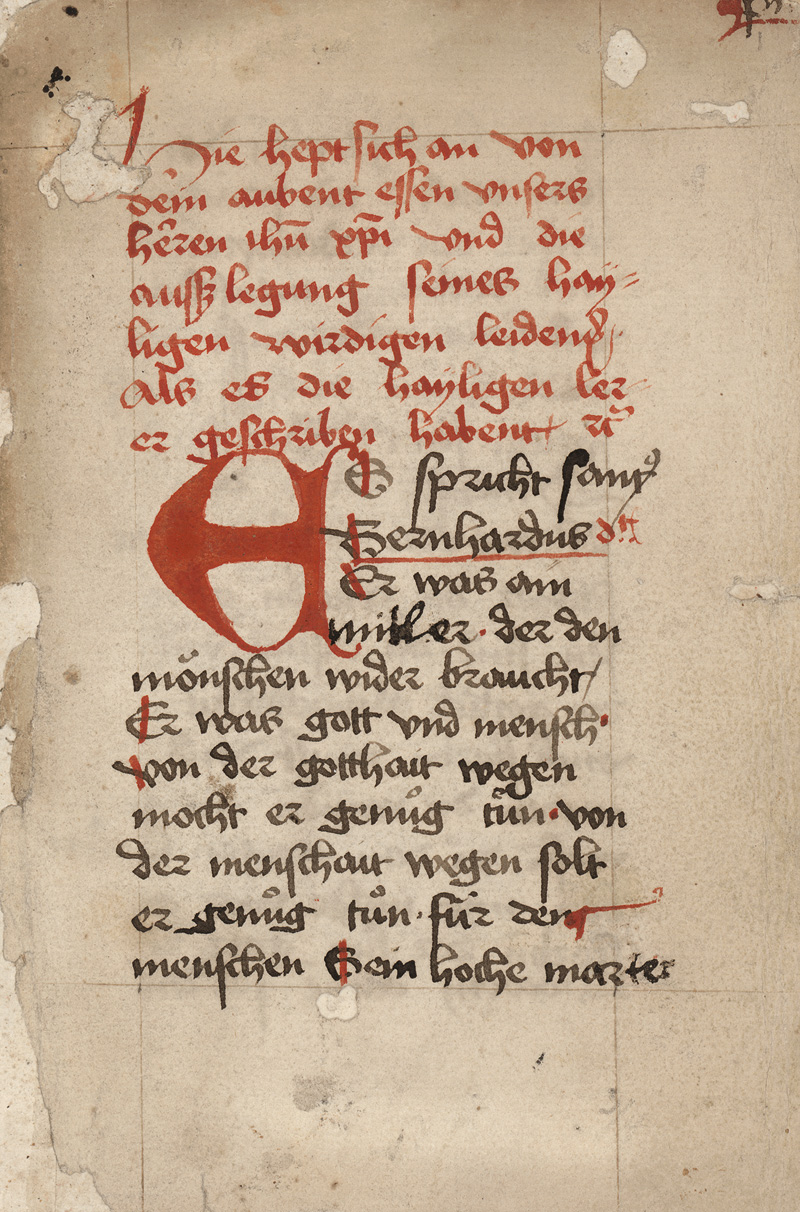 Hie hept sich an von
dem aubent essen vnsers
herren ihū xp̄i vnd die
ausz legung seines hay=
ligen wirdigen leidens
Als es die hayligen ler=
er geschriben habent
ES spricht sant
Bernhardus
Er was ain
mitler · der den
mönschen wider braucht /
Er was gott vnd mensch ·
von der gotthait wegen
mocht er genuͦg tuͦn · von
der menschait wegen solt
er genuͦg tuͦn · für den
menschen Sein hoche marter